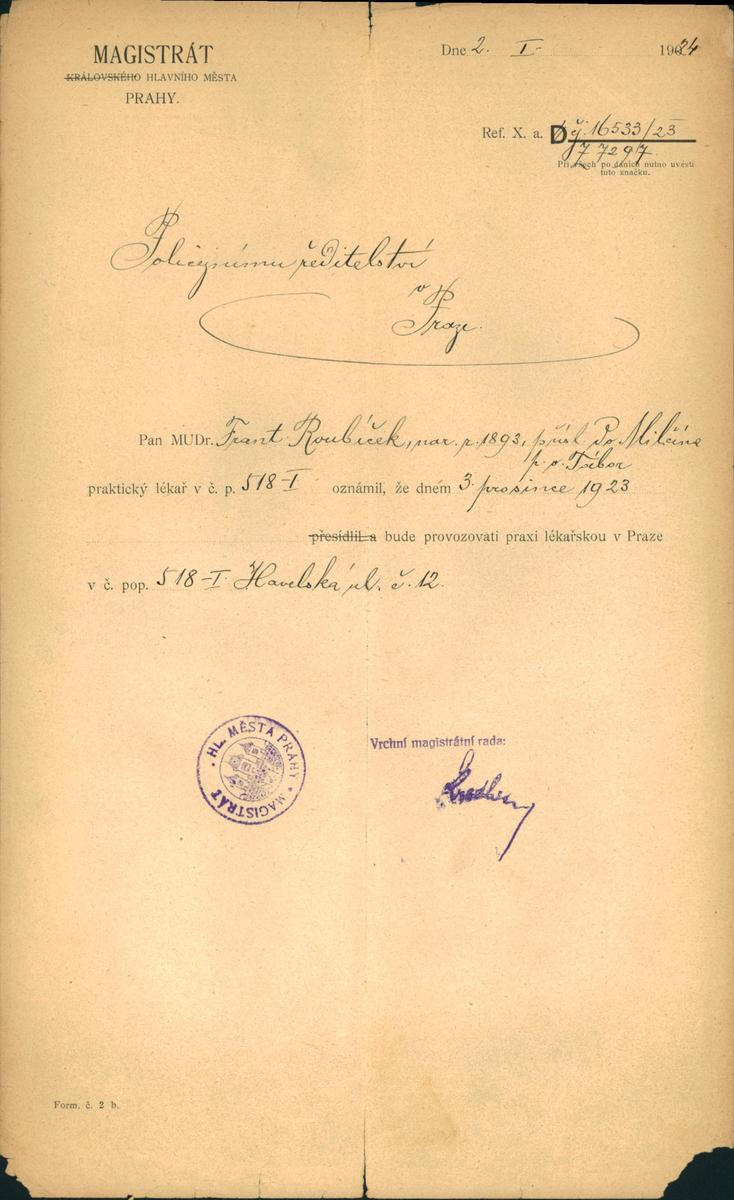 MAGISTRÁT
KRÁLOVSKÉHO HLAVNÍHO MĚSTA
PRAHY.
Dne 2. I. 1924
Ref. X. a. D čj. 16533/23
77297
Při všech podáních nutno uvésti
tuto značku.
Policejnímu ředitelství
v
Praze.
Pan MUDr. Frant. Roubíček, nar. r. 1893, přísl. do Milčína
p. o. Tábor
praktický lékař v č. p. 518-I oznámil, že dnem 3. prosince 1923
přesídlil a bude provozovati praxi lékařskou v Praze
v č. pop. 518-I Havelská ul. č. 12.
HL. MĚSTA PRAHY * MAGISTRÁT
Vrchní magistrátní rada:
Form. č. 2 b.